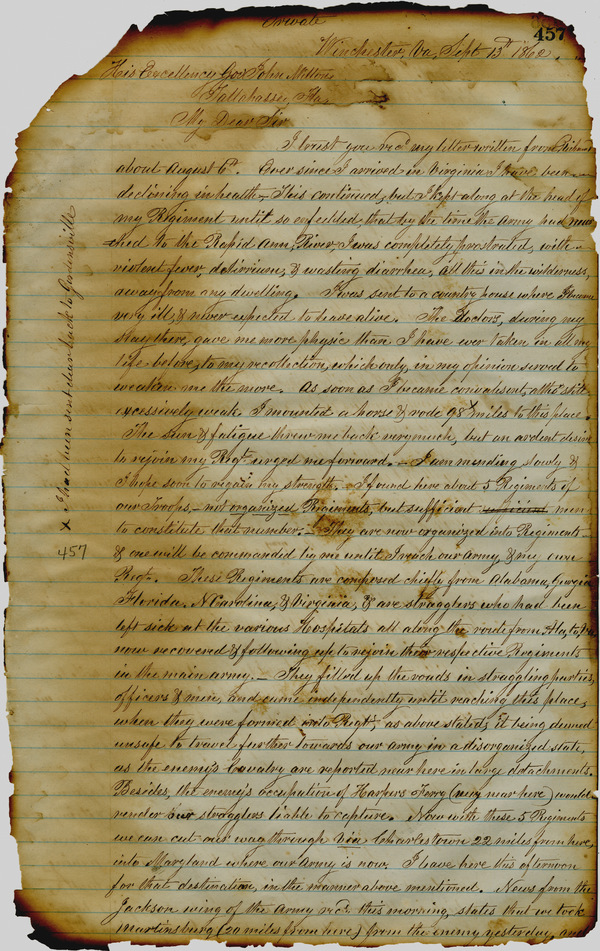 Private
457
Winchester, Va, Sept 13th 1862.
His Excellency Gov John Milton
Tallahassee, Fla,
My Dear Sir
I trust you recd my letter written from Richmond
about August 6th. Ever since I arrived in Virginia I have been
declining in health. This continued, but I kept along at the head of
my Regiment until so enfeebled that by the time the Army had mar
ched to the Rapid Ann, River, I was completely prostrated, with
violent fever, delirium, & wasting diarrhea, all this in the wilderness,
away from any dwelling. I was sent to a country house where I became
very ill, & never expected to leave alive. The doctors, during my
stay there, gave me more physic than I have ever taken in all my
life before, to my recollection, which only, in my opinion served to
weaken me the more. As soon as I became convalescent, altho still
excessively weak I mounted a horse & rode 98 x miles to this place.
The sun & fatigue threw me back very much, but an ardent desire
to rejoin my Regt. urged me forward. – I am mending slowly &
I hope soon to regain my strength. I found here about 5 Regiments of
our Troops, – not organized Regiments, but sufficient men
to constitute that number. – They are now organized into Regiments
& one will be commanded by me until I reach our Army, & my own
Regt. These Regiments are composed chiefly from Alabama, Georgia
Florida, N Carolina, & Virginia, & are stragglers who had been
left sick at the various Hospitals all along the route from Fla, to Va
now recovered & following up to rejoin their respective Regiments
in the main army. – They filled up the roads in straggling parties,
officers & men, and came independently until reaching this place,
when they were formed into Regts, as above stated, it being deemed
unsafe to travel further towards our army in a disorganized state,
as the enemy's Cavalry are reported near here in large detachments.
Besides, the enemy's occupation of Harpers Ferry (very near here) would
render our stragglers liable to capture. Now with these 5 Regiments
we can cut our way through via Charlestown 22 miles from here,
into Maryland where our Army is now. I leave here this afternoon
for that destination, in the manner above mentioned. News from the
Jackson wing of the Army recd. this morning, states that we took
Martinsburg (20 miles from here) from the enemy yesterday, and
x I had been sent clear back to Gordonsville
457